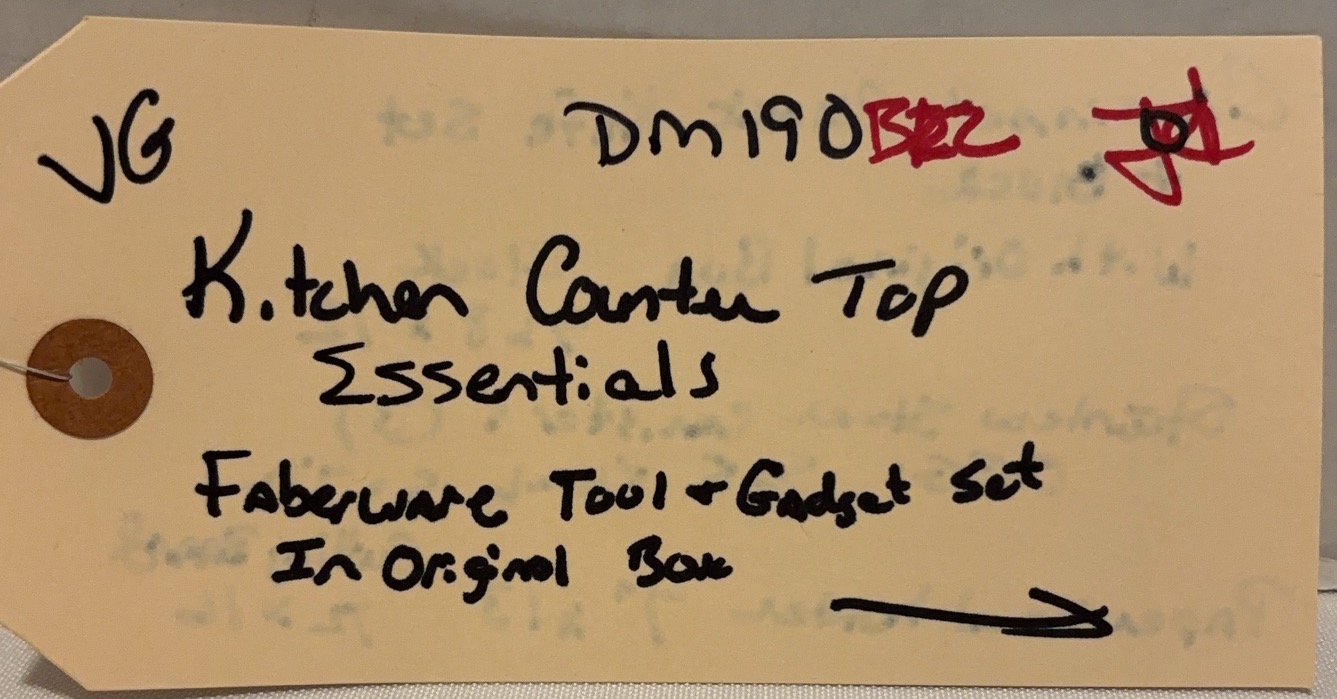 VG
DM190
Kitchen Counter Top
Essentials
Faberware Tool + Gadget Set
In Original Box